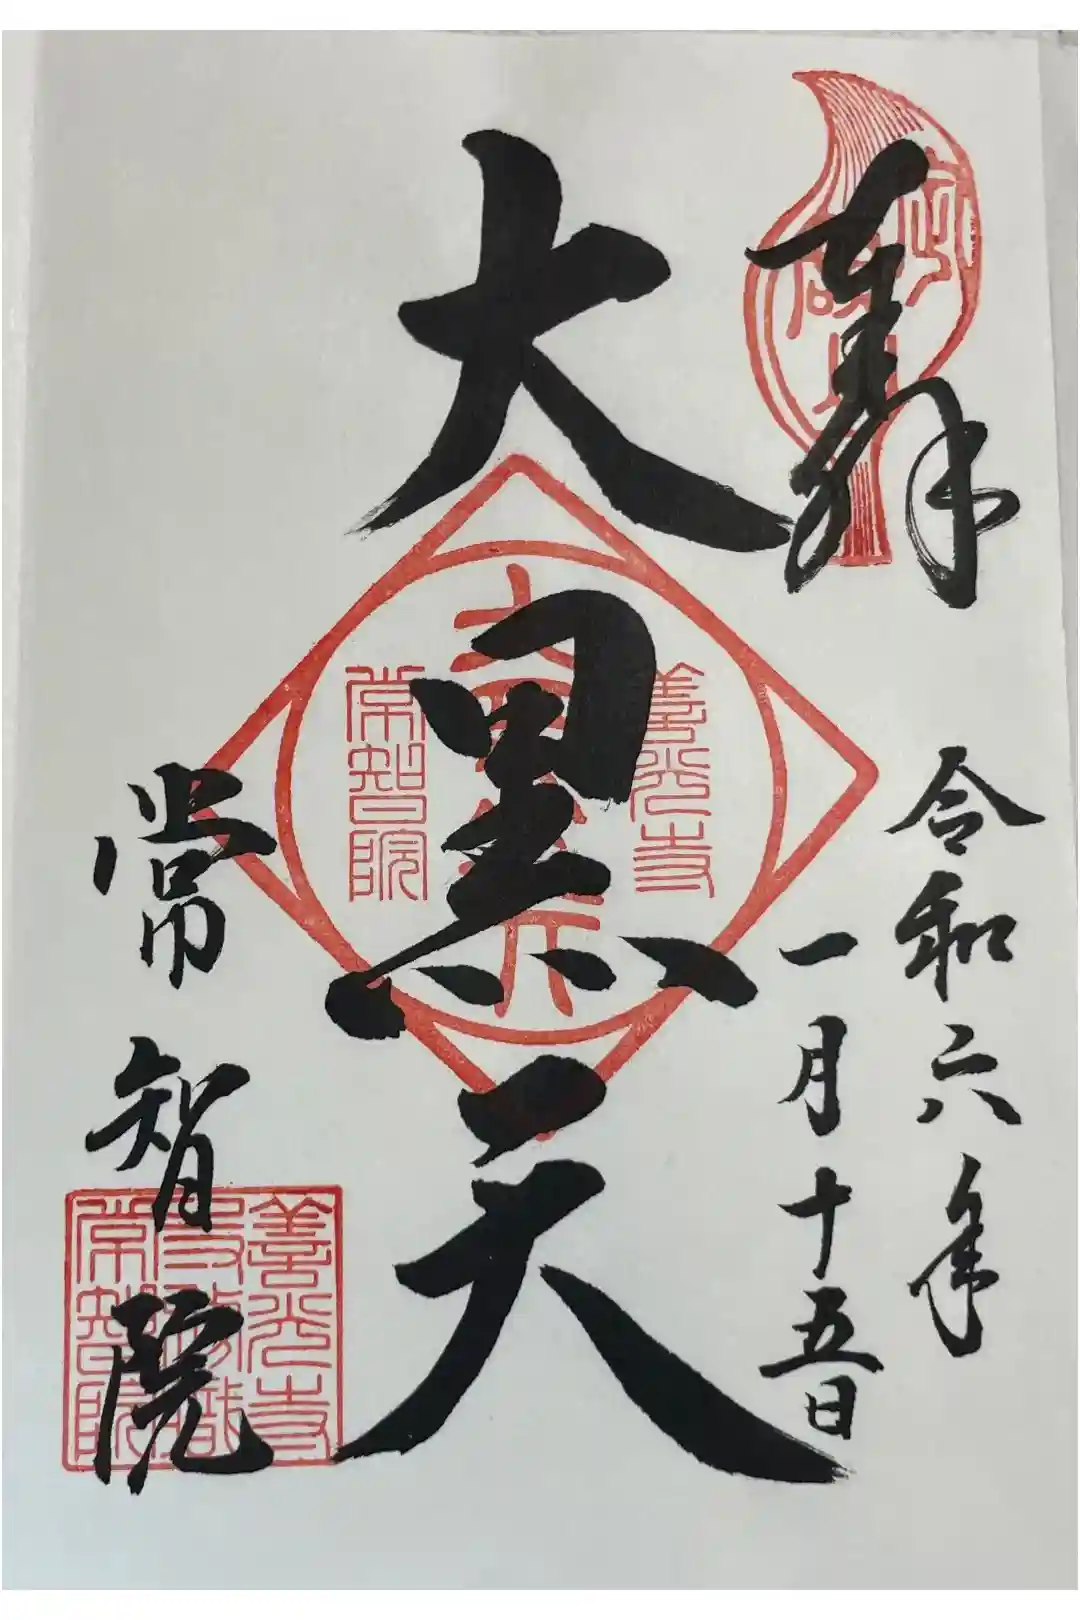 奉拝
令和六年
一月十五日
大黒天
善光寺
常智院
常智院
善光寺
常智院